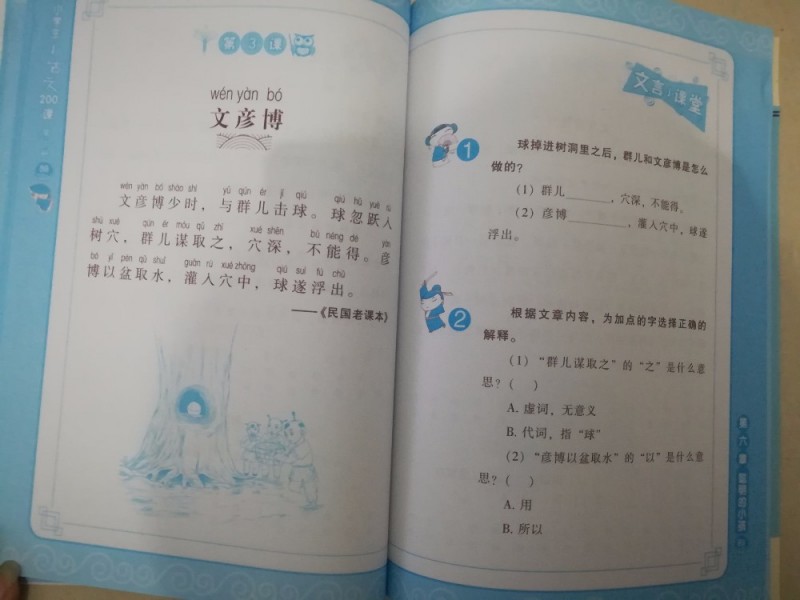 小学生小古文200课
第3课
wén yàn bó
文彦博
wén yàn bó shào shí yǔ qún ér jī qiú qiú hū yuè rù
文彦博少时，与群儿击球。球忽跃入
shù xué qún ér móu qǔ zhī xué shēn bù néng dé yàn
树穴，群儿谋取之，穴深，不能得。彦
bó yǐ pén qǔ shuǐ guàn rù xué zhōng qiú suì fú chū
博以盆取水，灌入穴中，球遂浮出。
——《民国老课本》
文言小课堂
1 球掉进树洞里之后，群儿和文彦博是怎么
做的？
（1）群儿________，穴深，不能得。
（2）彦博________，灌入穴中，球遂
浮出。
2 根据文章内容，为加点的字选择正确的
解释。
（1）“群儿谋取之”的“之”是什么意
思？（ ）
A. 虚词，无意义
B. 代词，指“球”
（2）“彦博以盆取水”的“以”是什么意
思？（ ）
A. 用
B. 所以
第六章 聪明的小孩